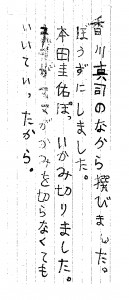 香川真司のなから撰びました。
ぼうずにしました。
本田圭佑ぽ。いかみ切りました。
がかみを切らなくても
いいていったから。